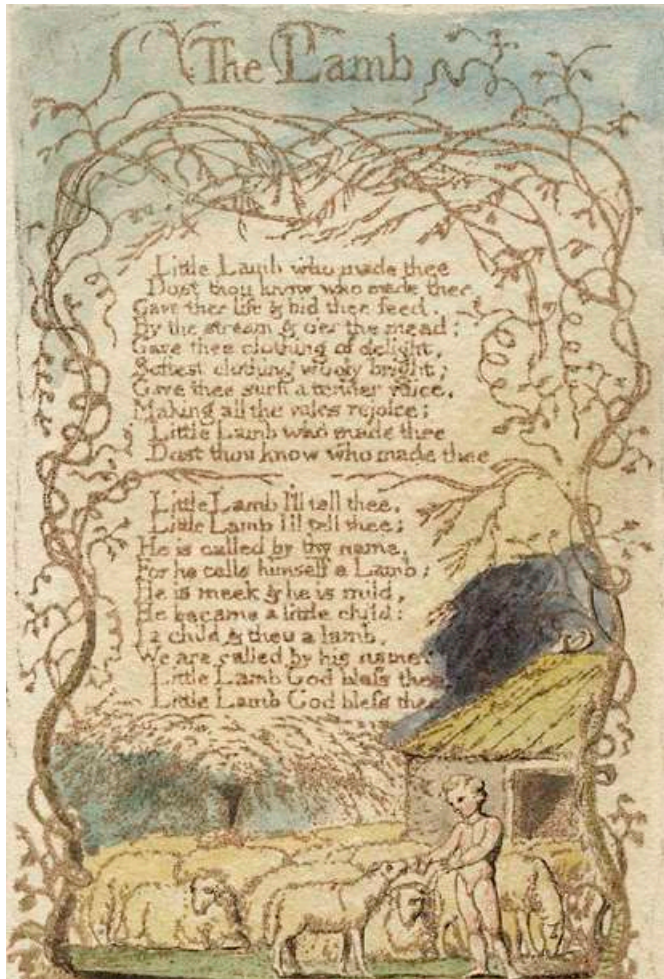 The Lamb
Little Lamb who made thee
Dost thou know who made thee
Gave thee life & bid thee feed.
By the stream & o'er the mead;
Gave thee clothing of delight,
Softest clothing wooly bright;
Gave thee such a tender voice,
Making all the vales rejoice;
Little Lamb who made thee
Dost thou know who made thee
Little Lamb I'll tell thee,
Little Lamb I'll tell thee;
He is called by thy name,
For he calls himself a Lamb;
He is meek & he is mild,
He became a little child:
I a child & thou a lamb,
We are called by his name.
Little Lamb God bless thee
Little Lamb God bless thee